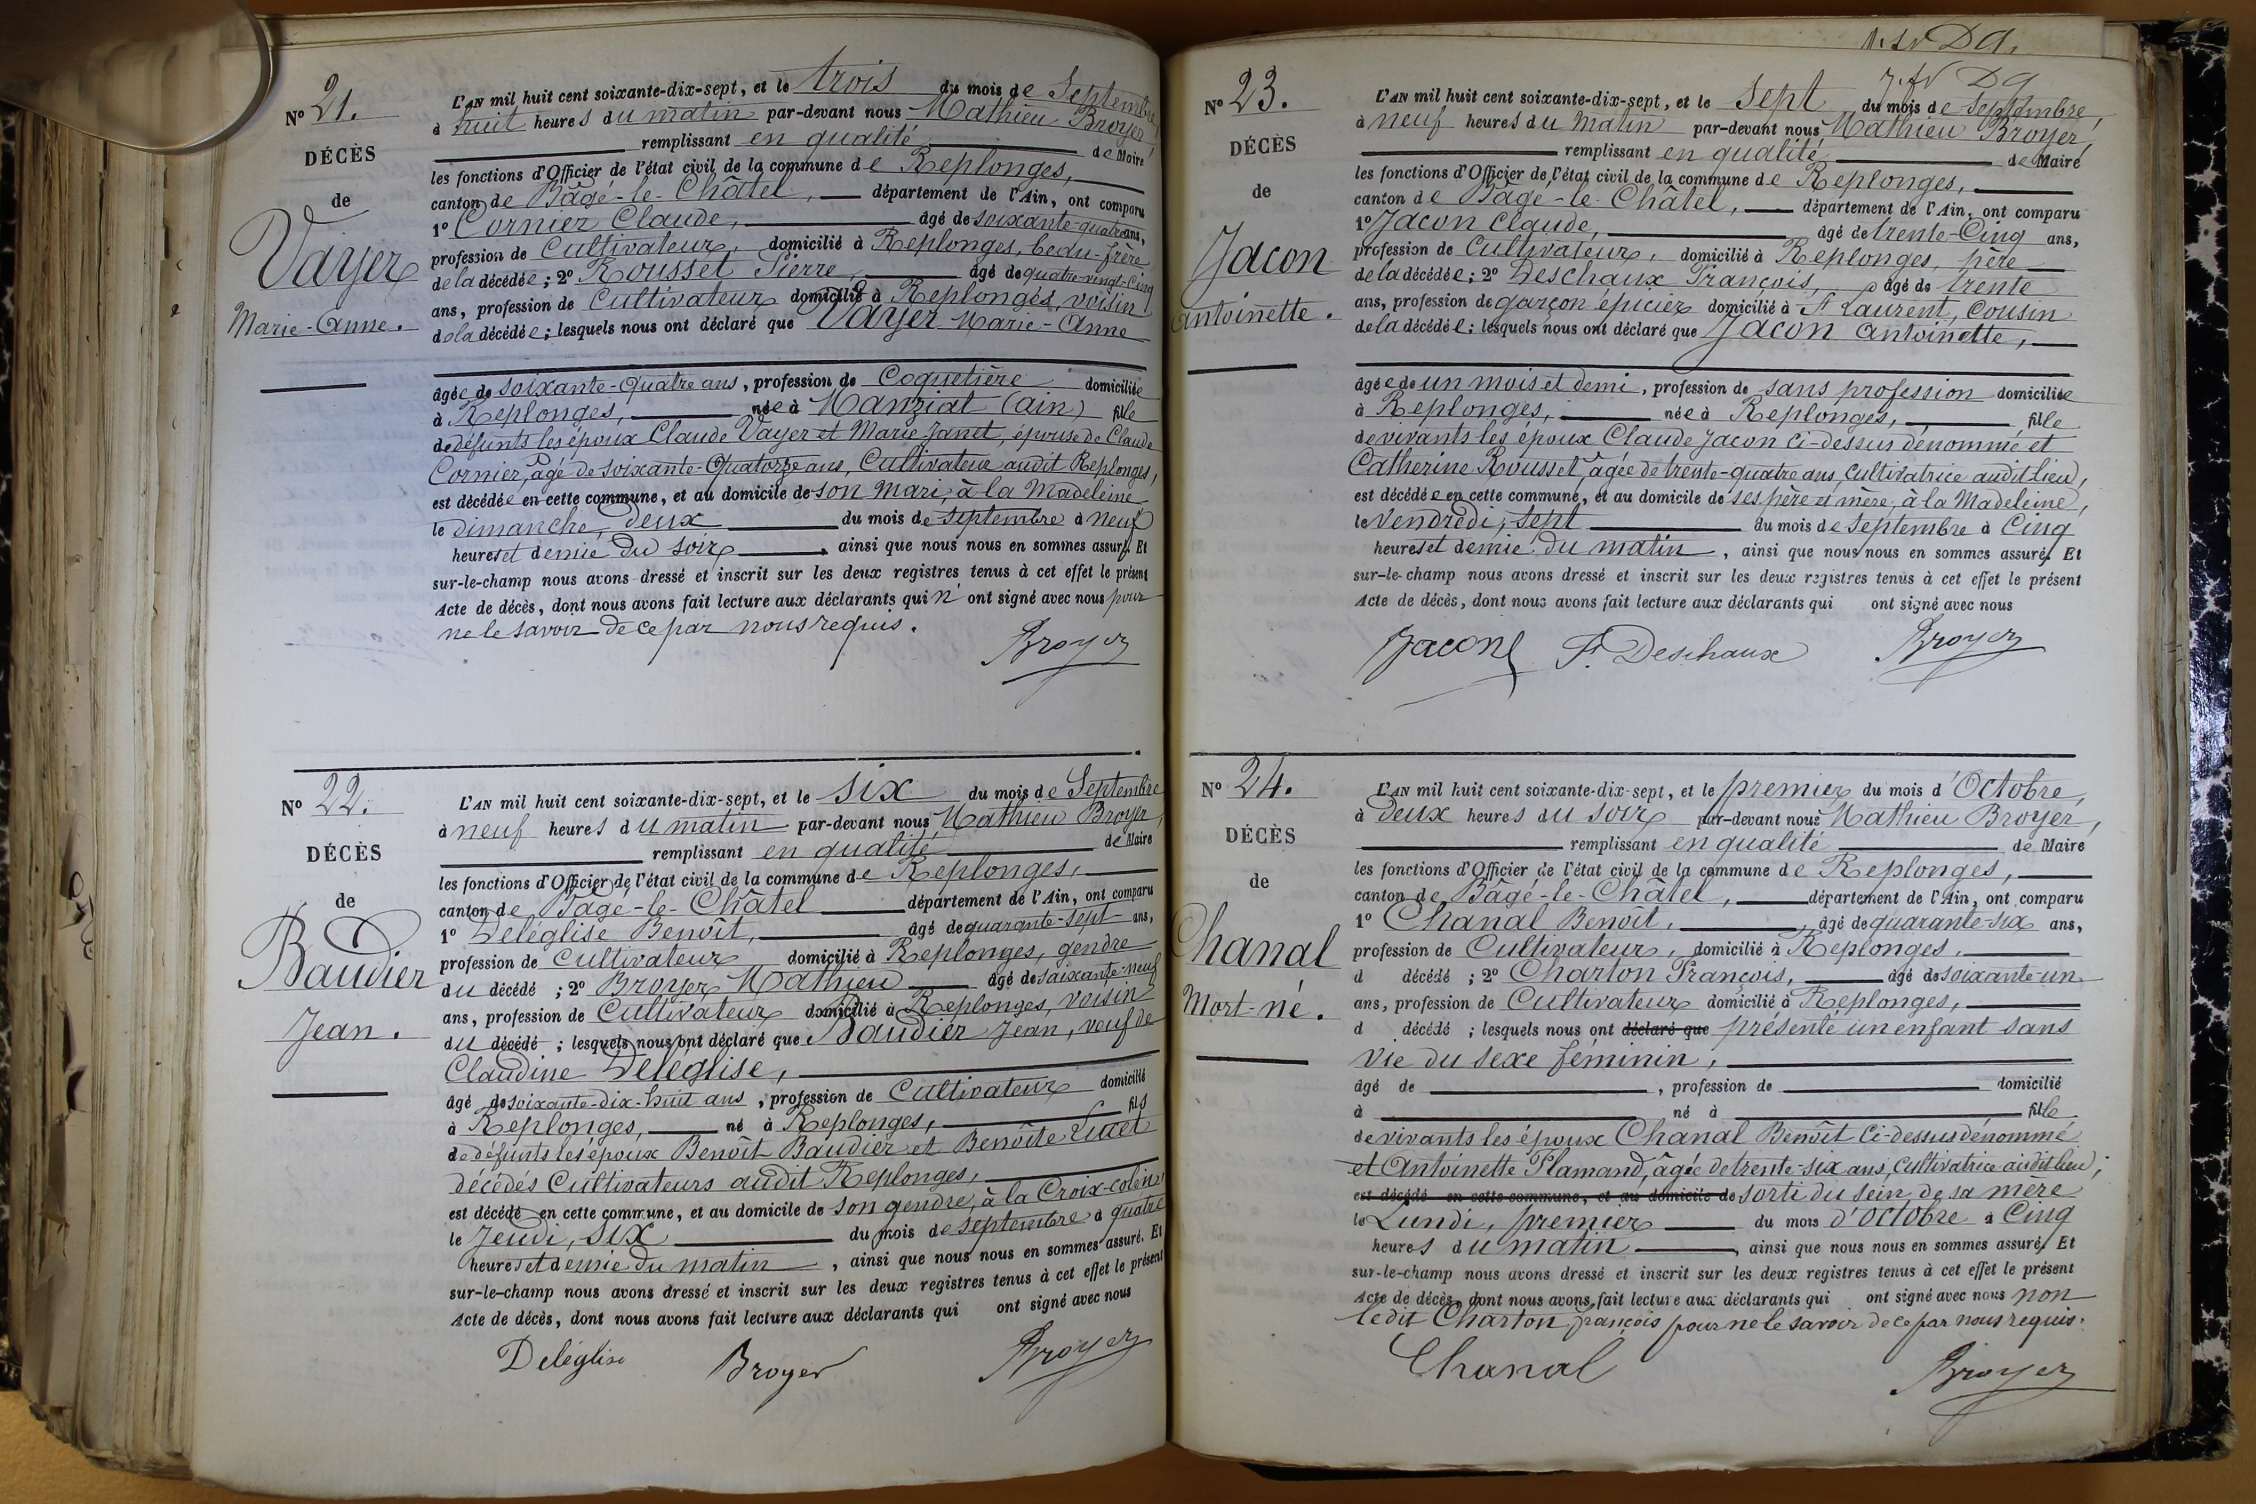 N° 21.
DÉCÈS
de
Vayer
Marie-Anne.
L'AN mil huit cent soixante-dix-sept, et le trois du mois de Septembre
à huit heures du matin par-devant nous Mathieu Broyer,
remplissant en qualité de Maire
les fonctions d'Officier de l'état civil de la commune de Replonges,
canton de Bâgé-le-Châtel, département de l'Ain, ont comparu
1° Cornier Claude, âgé de soixante-quatre ans,
profession de Cultivateur, domicilié à Replonges, beau-frère
de la décédée ; 2° Rousset Pierre, âgé de quatre-vingt-cinq
ans, profession de Cultivateur domicilié à Replonges, voisin
de la décédée ; lesquels nous ont déclaré que Vayer Marie-Anne
âgée de soixante-quatre ans, profession de Coquetière domiciliée
à Replonges, née à Manziat (ain) fille
de défunts les époux Claude Vayer et Marie Janet, épouse de Claude
Cornier, âgé de soixante-Quatorze ans, Cultivateur audit Replonges,
est décédée en cette commune, et au domicile de son mari, à la Madeleine
le dimanche, deux du mois de septembre à neuf
heures et demie du soir, ainsi que nous nous en sommes assuré. Et
sur-le-champ nous avons dressé et inscrit sur les deux registres tenus à cet effet le présent
Acte de décès, dont nous avons fait lecture aux déclarants qui n'ont signé avec nous pour
ne le savoir de ce par nous requis.
Broyer
N° 22.
DÉCÈS
de
Baudier
Jean.
L'AN mil huit cent soixante-dix-sept, et le six du mois de Septembre
à neuf heures du matin par-devant nous Mathieu Broyer,
remplissant en qualité de Maire
les fonctions d'Officier de l'état civil de la commune de Replonges,
canton de Bâgé-le-Châtel département de l'Ain, ont comparu
1° Deléglise Benoît, âgé de quarante-sept ans,
profession de cultivateur domicilié à Replonges, gendre
du décédé ; 2° Broyer Mathieu âgé de soixante-neuf
ans, profession de Cultivateur domicilié à Replonges, voisin
du décédé ; lesquels nous ont déclaré que Baudier Jean, veuf de
Claudine Deléglise,
âgé de soixante-dix-huit ans, profession de Cultivateur domicilié
à Replonges, né à Replonges, fils
de défunts les époux Benoît Baudier et Benoîte
décédés Cultivateurs audit Replonges,
est décédé en cette commune, et au domicile de son gendre, à la Croix-colin
le Jeudi, six du mois de septembre à quatre
heures et demie du matin, ainsi que nous nous en sommes assuré. Et
sur-le-champ nous avons dressé et inscrit sur les deux registres tenus à cet effet le présent
Acte de décès, dont nous avons fait lecture aux déclarants qui ont signé avec nous
Deléglise Broyer Broyer
N° 23.
DÉCÈS
de
Jacon
Antoinette.
L'AN mil huit cent soixante-dix-sept, et le sept du mois de Septembre,
à neuf heures du matin par-devant nous Mathieu Broyer,
remplissant en qualité de Maire
les fonctions d'Officier de l'état civil de la commune de Replonges,
canton de Bâgé-le-Châtel, département de l'Ain, ont comparu
1° Jacon Claude, âgé de trente-cinq ans,
profession de Cultivateur, domicilié à Replonges, père
de la décédée ; 2° Deschaux François, âgé de trente
ans, profession de garçon épicier domicilié à St Laurent, Cousin
de la décédée ; lesquels nous ont déclaré que Jacon Antoinette,
âgée de un mois et demi, profession de sans profession domiciliée
à Replonges, née à Replonges, fille
de vivants les époux Claude Jacon ci-dessus dénommé et
Catherine Rousset, âgée de trente-quatre ans, cultivatrice audit lieu,
est décédée en cette commune, et au domicile de ses père et mère, à la Madeleine,
le Vendredi, sept du mois de septembre à Cinq
heures et demie du matin, ainsi que nous nous en sommes assuré. Et
sur-le-champ nous avons dressé et inscrit sur les deux registres tenus à cet effet le présent
Acte de décès, dont nous avons fait lecture aux déclarants qui ont signé avec nous
Jacon F. Deschaux Broyer
N° 24.
DÉCÈS
de
Chanal
Mort-né.
L'AN mil huit cent soixante-dix-sept, et le premier du mois d'Octobre,
à deux heures du soir par-devant nous Mathieu Broyer,
remplissant en qualité de Maire
les fonctions d'Officier de l'état civil de la commune de Replonges,
canton de Bâgé-le-Châtel, département de l'Ain, ont comparu
1° Chanal Benoit, âgé de quarante-six ans,
profession de Cultivateur, domicilié à Replonges,
d décédé ; 2° Charton François, âgé de soixante-un
ans, profession de Cultivateur domicilié à Replonges,
d décédé ; lesquels nous ont déclaré que présenté un enfant sans
vie du sexe féminin,
âgé de , profession de domicilié
à né à fille
de vivants les époux Chanal Benoît Ci-dessus dénommé
et Antoinette Plamand, âgée de trente-six ans, Cultivatrice audit lieu ;
est décédé en cette commune, et au domicile de sorti du sein de sa mère
le Lundi, premier du mois d'octobre à Cinq
heures du matin, ainsi que nous nous en sommes assuré. Et
sur-le-champ nous avons dressé et inscrit sur les deux registres tenus à cet effet le présent
Acte de décès, dont nous avons fait lecture aux déclarants qui ont signé avec nous non
ledit Charton françois pour ne le savoir de ce par nous requis.
Chanal Broyer